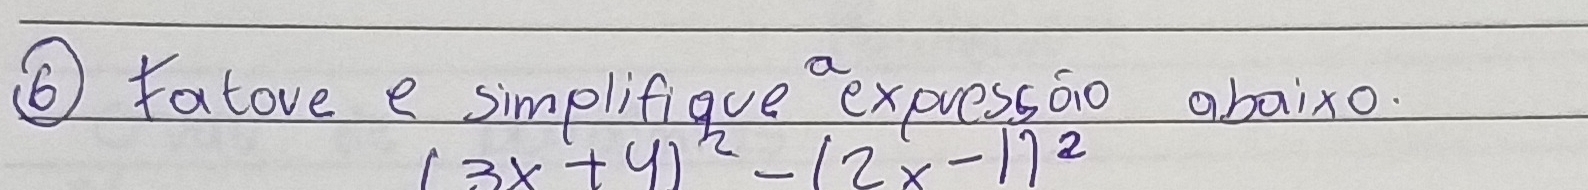 ⑥ Fatore e simplifique a expressão abaixo.
(3x + 4)² - (2x - 1)²